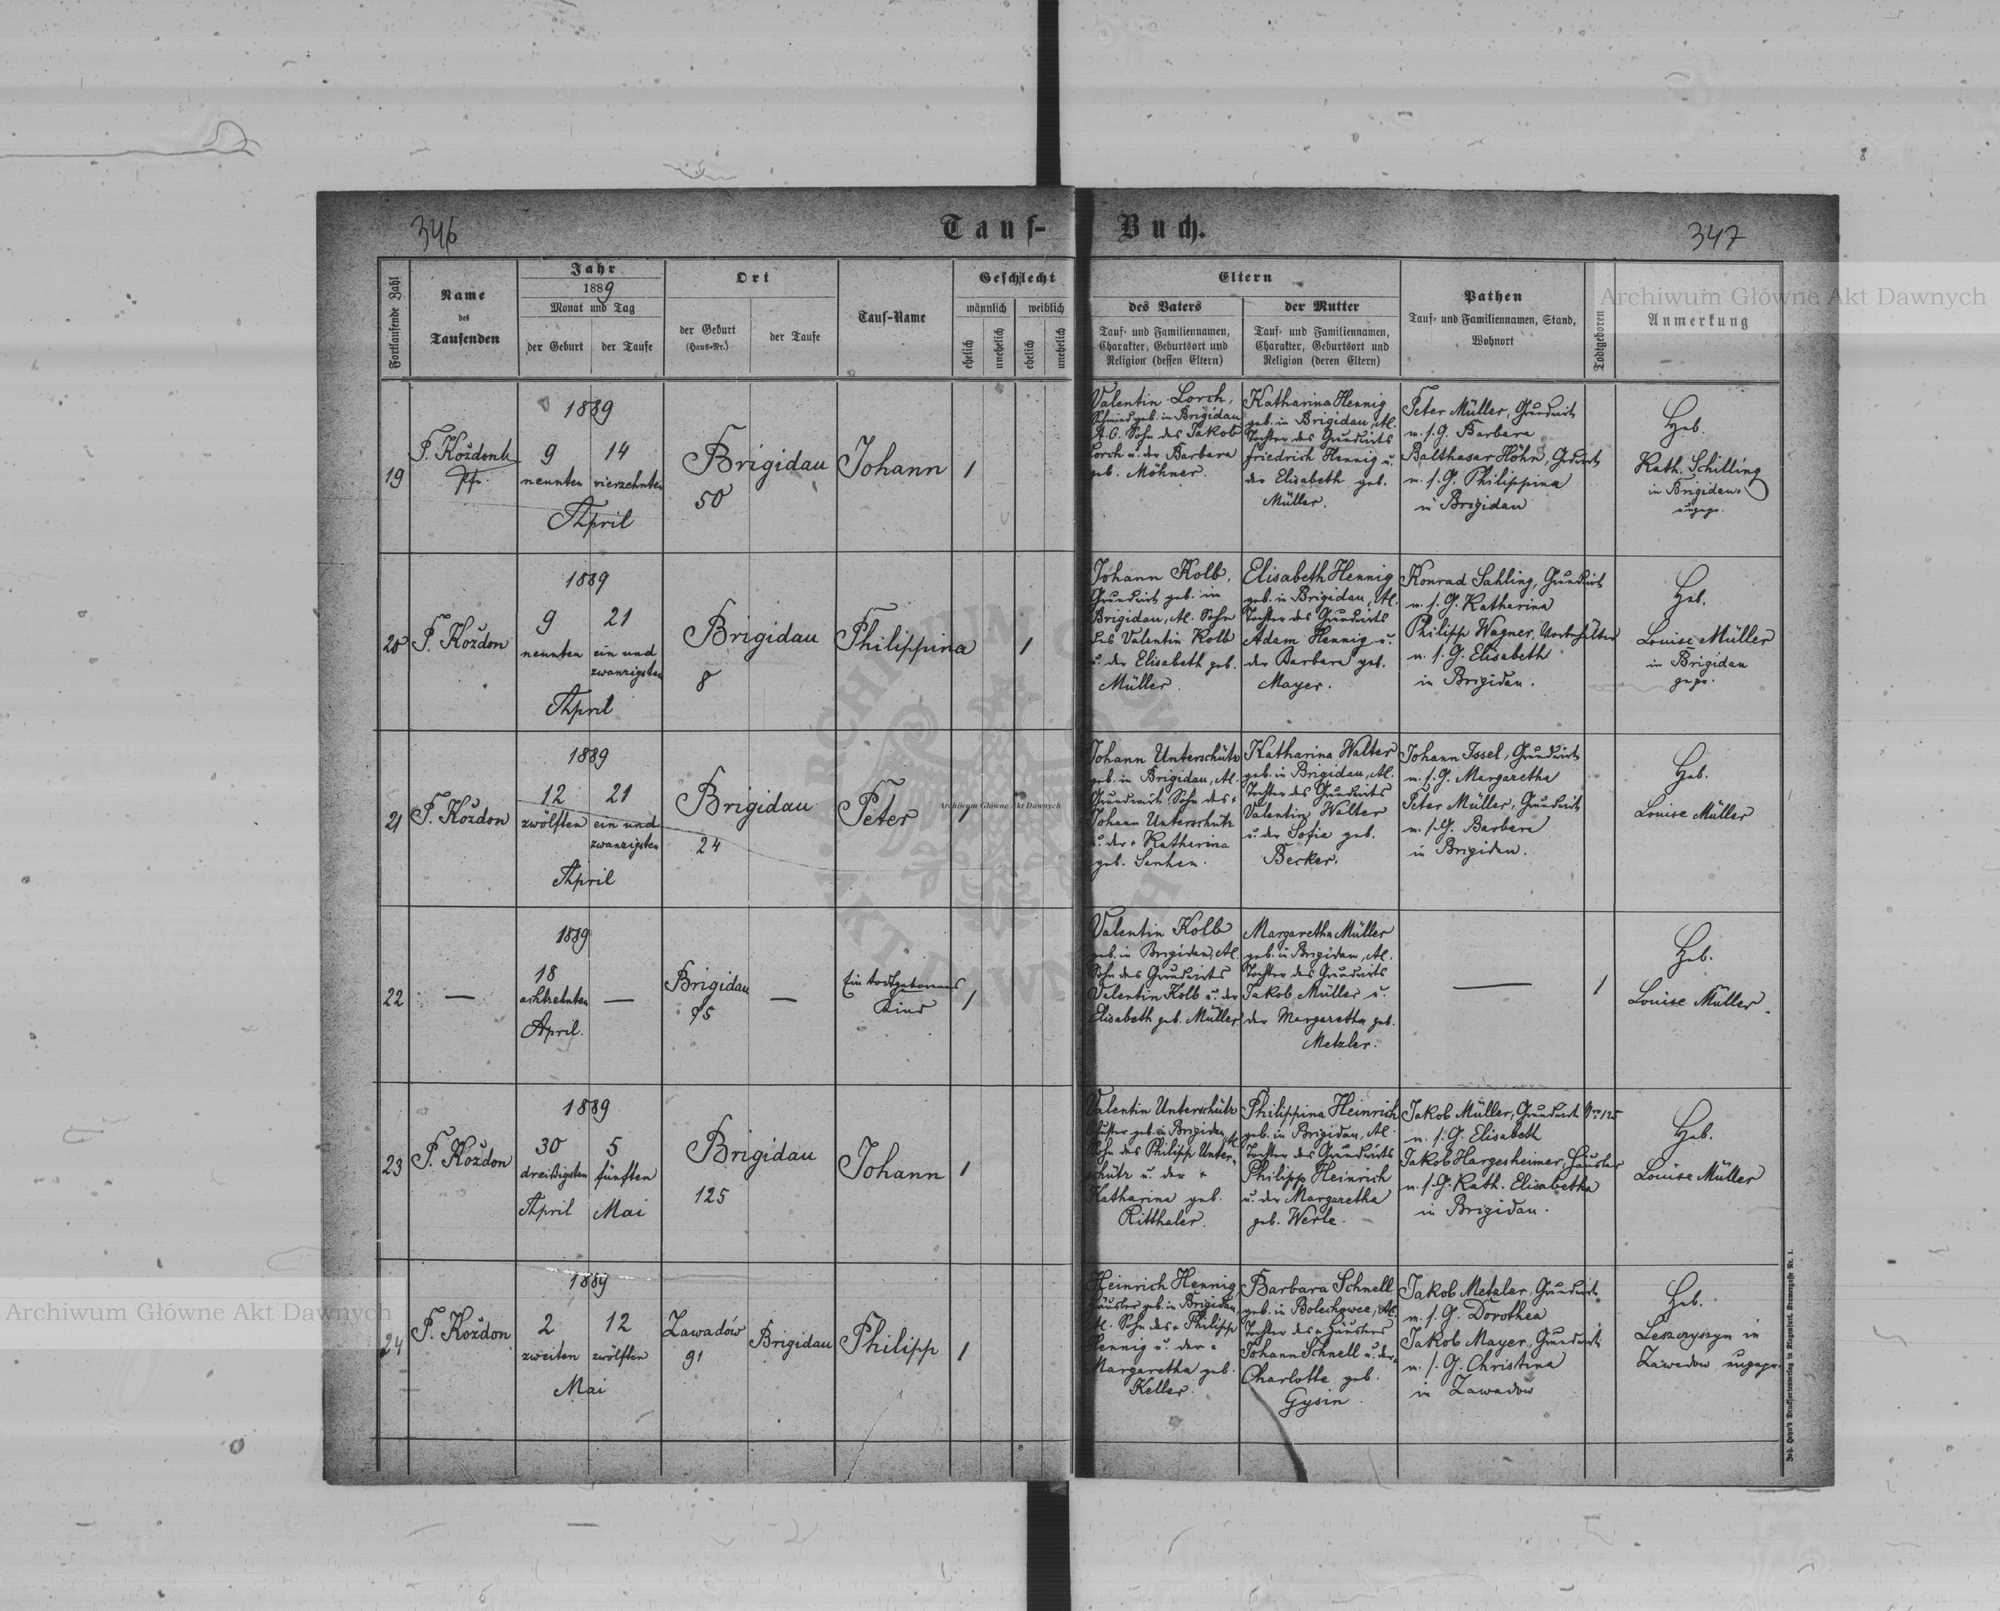 346
Tauf-
Buch.
347
Fortlaufende Zahl
Name
des
Taufenden
Jahr
1889
Monat und Tag
der Geburt
der Taufe
Ort
der Geburt
(Haus-Nr.)
der Taufe
Tauf-Name
Geschlecht
männlich
weiblich
ehelich
unehelich
ehelich
unehelich
Eltern
des Vaters
Tauf- und Familiennamen,
Charakter, Geburtsort und
Religion (dessen Eltern)
der Mutter
Tauf- und Familiennamen,
Charakter, Geburtsort und
Religion (deren Eltern)
Pathen
Tauf- und Familiennamen, Stand,
Wohnort
Todtgeboren
Anmerkung
19
F. Koždon
Pfr.
1889
9
neunten
14
vierzehnten
April
Brigidau
50
Johann
1
Valentin Lorch,
Schmied geb. in Brigidau
A.C. Sohn des Jakob
Lorch u. der Barbara
geb. Möhner.
Katharina Hennig
geb. in Brigidau, Al.
Tochter des Grundwirts
Friedrich Hennig u.
der Elisabeth geb.
Müller.
Peter Müller, Grundwirt
u. s. G. Barbara
Balthasar Höhn, Grundwirt
u. s. G. Philippina
in Brigidau
Heb.
Kath. Schilling
in Brigidau
ungepr.
20
F. Koždon
1889
9
neunten
21
ein und
zwanzigsten
April
Brigidau
8
Philippina
1
Johann Kolb,
Grundwirt geb. in
Brigidau, Al. Sohn
des Valentin Kolb
u. der Elisabeth geb.
Müller.
Elisabeth Hennig
geb. in Brigidau, Al.
Tochter des Grundwirts
Adam Hennig u.
der Barbara geb.
Mayer.
Konrad Sahling, Grundwirt
u. s. G. Katharina
Philipp Wagner,
u. s. G. Elisabeth
in Brigidau.
Heb.
Louise Müller
in Brigidau
gepr.
21
F. Koždon
1889
12
zwölften
21
ein und
zwanzigsten
April
Brigidau
24
Peter
1
Johann Unterschütz
geb. in Brigidau, Al.
Grundwirt Sohn des
Johann Unterschütz
u. der Katharina
geb.
Katharina Walter
geb. in Brigidau, Al.
Tochter des Grundwirts
Valentin Walter
u. der Sofia geb.
Becker.
Johann Issel, Grundwirt
u. s. G. Margaretha
Peter Müller, Grundwirt
u. s. G. Barbara
in Brigidau.
Heb.
Louise Müller
22
—
1889
18
achtzehnten
April.
—
Brigidau
95
—
Ein todtgeborenes
Kind
1
Valentin Kolb
geb. in Brigidau, Al.
Sohn des Grundwirts
Valentin Kolb u. der
Elisabeth geb. Müller
Margaretha Müller
geb. in Brigidau, Al.
Tochter des Grundwirts
Jakob Müller u.
der Margaretha geb.
Metzler.
—
1
Heb.
Louise Müller.
23
F. Koždon
1889
30
dreißigsten
April
5
fünften
Mai
Brigidau
125
Johann
1
Valentin Unterschütz
Schuster geb. in Brigidau, Al.
Sohn des Philipp Unter-
schütz u. der
Katharina geb.
Ritthaler.
Philippina Heinrich
geb. in Brigidau, Al.
Tochter des Grundwirts
Philipp Heinrich
u. der Margaretha
geb. Werle.
Jakob Müller, Grundwirt Nr. 125
u. s. G. Elisabeth
Jakob Hargesheimer, Häusler
u. s. G. Kath. Elisabetha
in Brigidau.
Heb.
Louise Müller
24
F. Koždon
1889
2
zweiten
12
zwölften
Mai
Zawadów
91
Brigidau
Philipp
1
Heinrich Hennig
Häusler geb. in Brigidau,
Al. Sohn des Philipp
Hennig u. der
Margaretha geb.
Keller.
Barbara Schnell
geb. in Bolechowce, Al.
Tochter des Häuslers
Johann Schnell u. der
Charlotte geb.
Gysin.
Jakob Metzler, Grundwirt
u. s. G. Dorothea
Jakob Mayer, Grundwirt
u. s. G. Christina
in Zawadow
Heb.
Leszczyszyn in
Zawadow ungepr.
Archiwum Główne Akt Dawnych
Archiwum Główne Akt Dawnych
Archiwum Główne Akt Dawnych